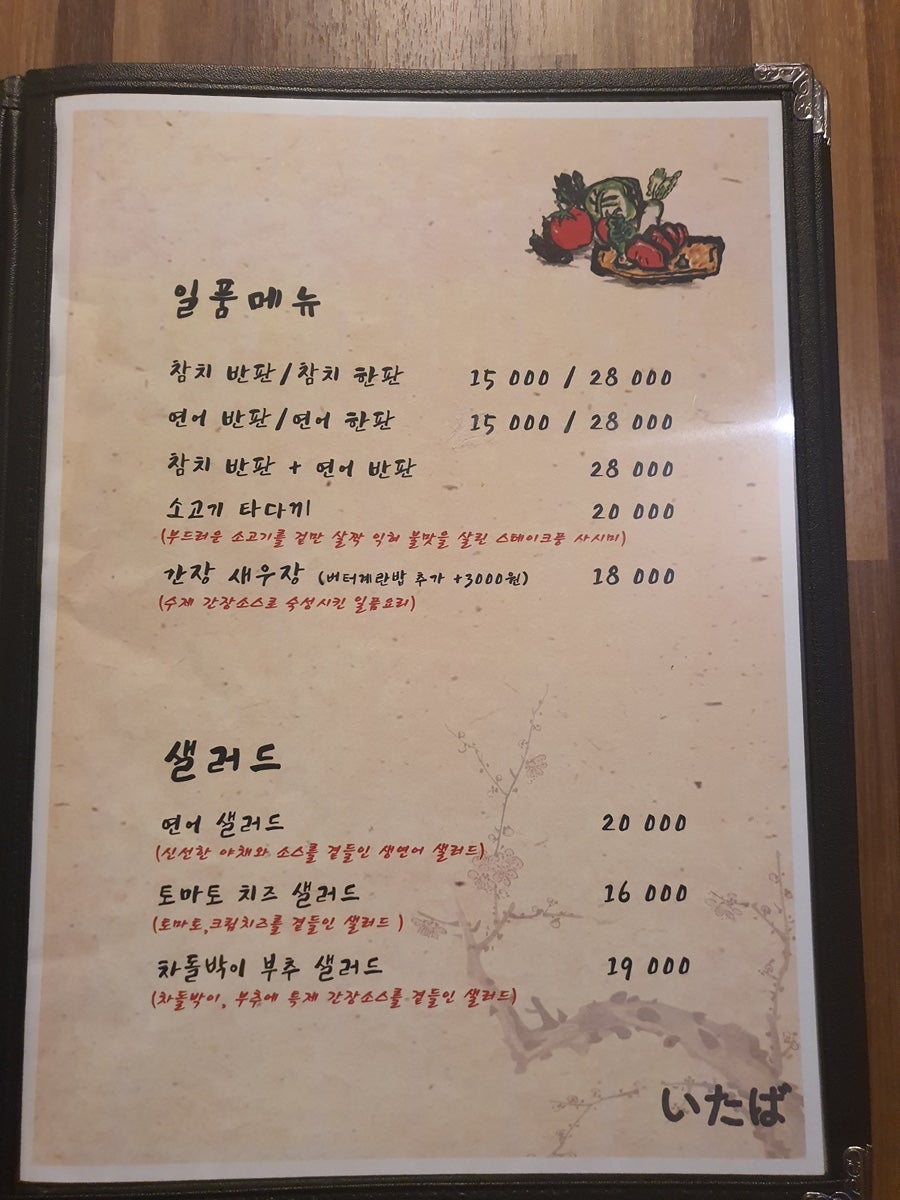 일품메뉴
참치 반판/참치 한판 15 000 / 28 000
연어 반판/연어 한판 15 000 / 28 000
참치 반판 + 연어 반판 28 000
소고기 타다끼 20 000
(부드러운 소고기를 겉만 살짝 익혀 불맛을 살린 스테이크풍 사시미)
간장 새우장 (버터계란밥 추가 +3000원) 18 000
(수제 간장소스로 숙성시킨 일품요리)
샐러드
연어 샐러드 20 000
(신선한 야채와 소스를 곁들인 생연어 샐러드)
토마토 치즈 샐러드 16 000
(토마토,크림치즈를 곁들인 샐러드 )
차돌박이 부추 샐러드 19 000
(차돌박이, 부추에 특제 간장소스를 곁들인 샐러드)
いたば